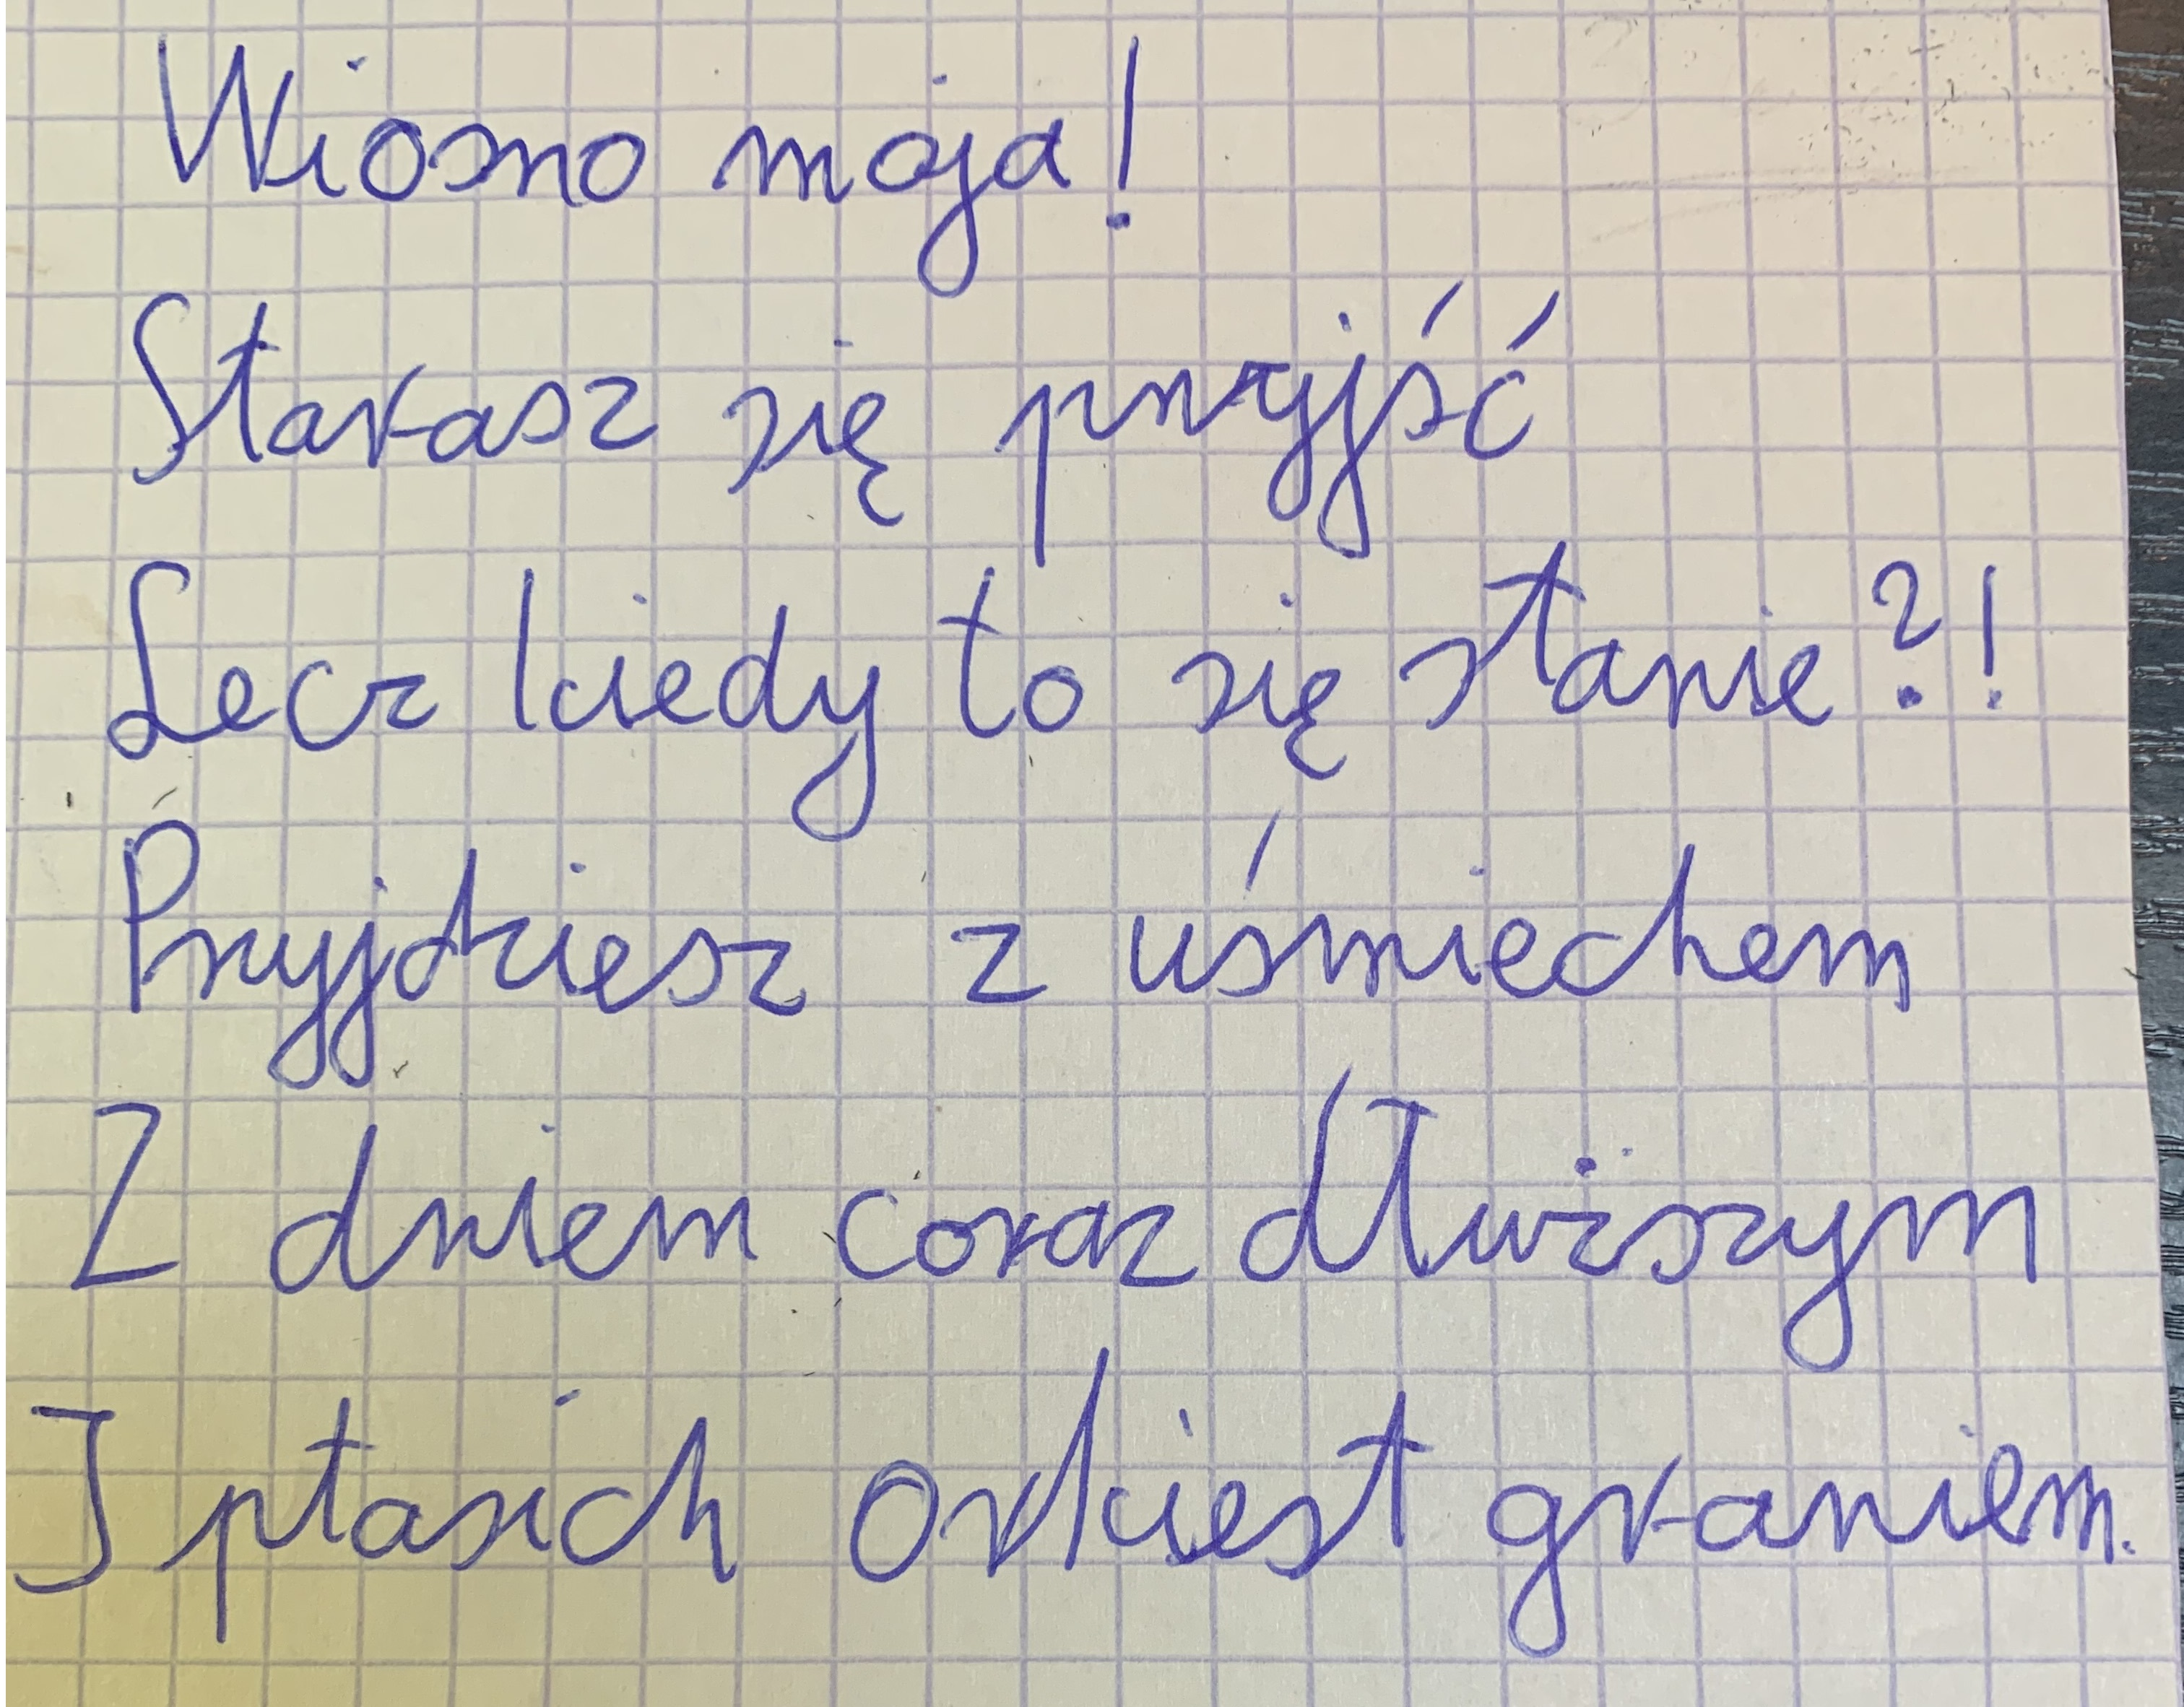 Wiosno moja!
Starasz się przyjść
Lecz kiedy to się stanie?!
Przyjdziesz z uśmiechem
Z dniem coraz dłuższym
I ptasich orkiest graniem.